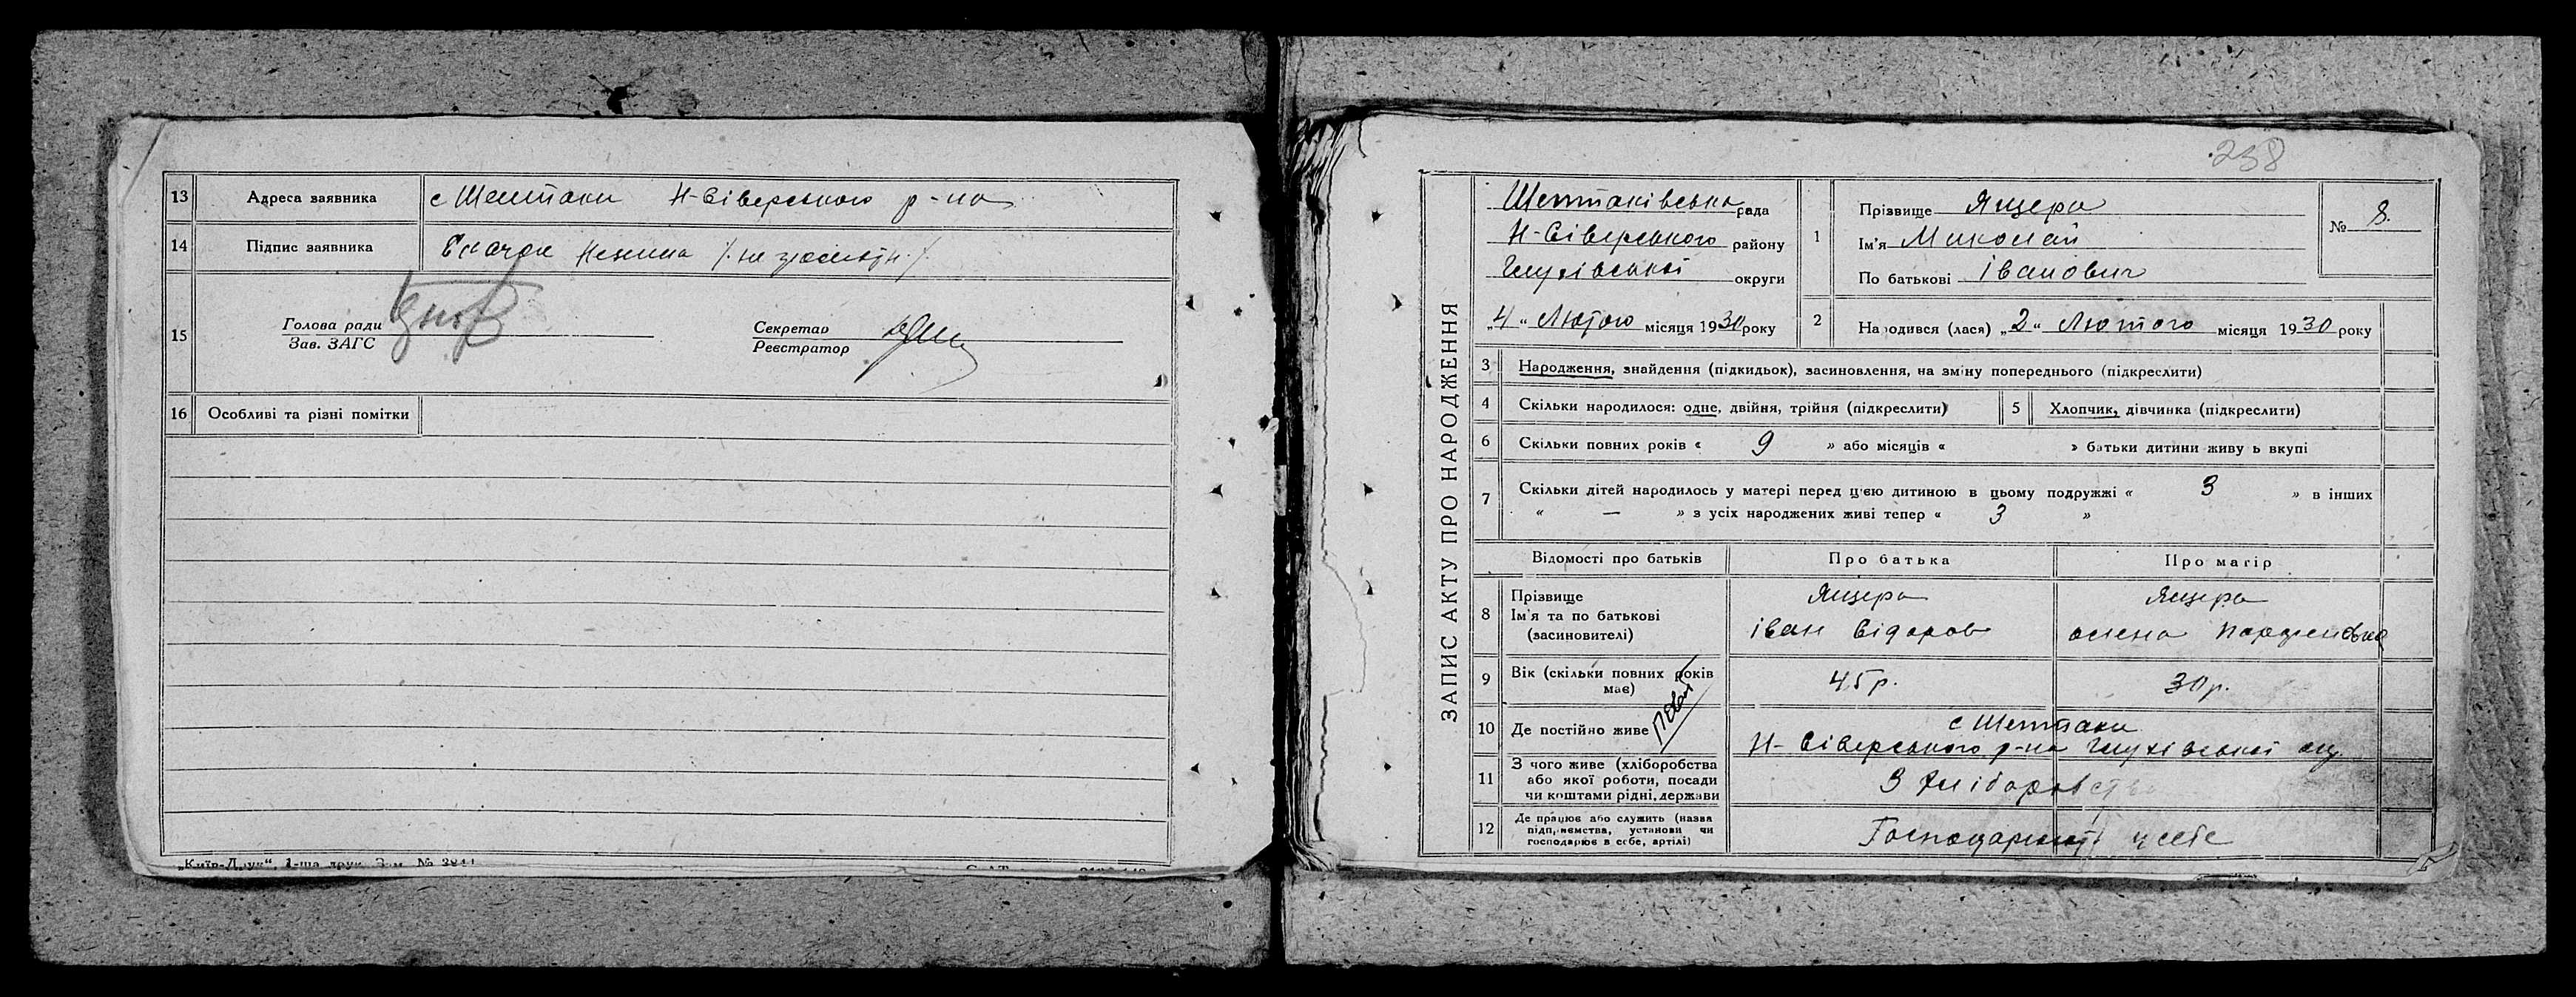 13 Адреса заявника с Шептаки Н-Сіверського р-на
14 Підпис заявника /. не грамотн. /.
15 Голова ради
Зав. ЗАГС
Секретар
Реєстратор
16 Особливі та різні помітки
„Київ-Друк“, 1-ша друк. Зам. № 3841
238
ЗАПИС АКТУ ПРО НАРОДЖЕННЯ
Шептаківська рада
Н-Сіверського району
Глухівської округи
„4“ Лютого місяця 1930 року
1 Прізвище Ящера
Ім'я Миколай
По батькові Іванович
№ 8.
2 Народився (лася) „2“ Лютого місяця 1930 року
3 Народження, знайдення (підкидьок), засиновлення, на зміну попереднього (підкреслити)
4 Скільки народилося: одне, двійня, трійня (підкреслити) 5 Хлопчик, дівчинка (підкреслити)
6 Скільки повних років « 9 » або місяців « » батьки дитини живуть вкупі
7 Скільки дітей народилось у матері перед цією дитиною в цьому подружжі « 3 » в інших
« — » з усіх народжених живі тепер « 3 »
Відомості про батьків Про батька Про матір
8 Прізвище Ящера Ящера
Ім'я та по батькові
(засиновителі) Іван Сідоров Олена
9 Вік (скільки повних років
має) 45 р. 30 р.
10 Де постійно живе с Шептаки
Н-Сіверського р-на Глухівської окр
11 З чого живе (хліборобства
або якої роботи, посади
чи коштами рідні, держави З хліборобства
12 Де працює або служить (назва
підприємства, установи чи
господарює в себе, артілі) Господарюют у себе